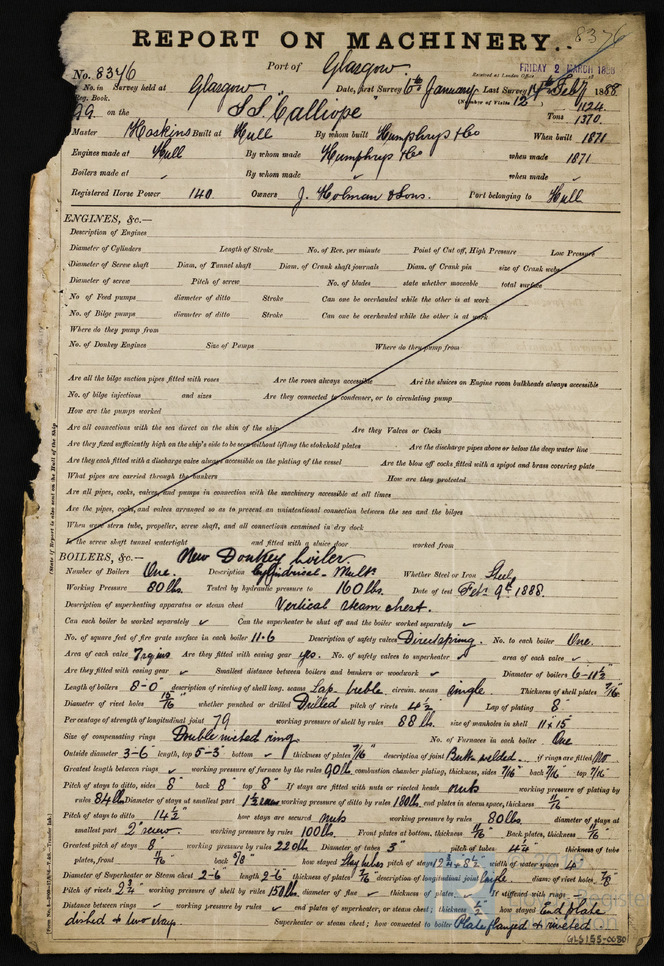 8376
REPORT ON MACHINERY.
No. 8376 Port of Glasgow Received at London Office FRIDAY 2 MARCH 1888
No. in Survey held at Glasgow Date, first Survey 6th January Last Survey Feby 1888
Reg. Book. (Number of Visits 12)
99 on the S.S. "Calliope" Tons 1124 1370
Master Hoskins Built at Hull By whom built Humphrys & Co When built 1871
Engines made at Hull By whom made Humphrys & Co when made 1871
Boilers made at By whom made when made
Registered Horse Power 140 Owners J. Holman & Sons. Port belonging to Hull
ENGINES, &c.—
Description of Engines
Diameter of Cylinders Length of Stroke No. of Rev. per minute Point of Cut off, High Pressure Low Pressure
Diameter of Screw shaft Diam. of Tunnel shaft Diam. of Crank shaft journals Diam. of Crank pin size of Crank webs
Diameter of screw Pitch of screw No. of blades state whether moveable total surface
No. of Feed pumps diameter of ditto Stroke Can one be overhauled while the other is at work
No. of Bilge pumps diameter of ditto Stroke Can one be overhauled while the other is at work
Where do they pump from
No. of Donkey Engines Size of Pumps Where do they pump from
Are all the bilge suction pipes fitted with roses Are the roses always accessible Are the sluices on Engine room bulkheads always accessible
No. of bilge injections and sizes Are they connected to condenser, or to circulating pump
How are the pumps worked
Are all connections with the sea direct on the skin of the ship Are they Valves or Cocks
Are they fixed sufficiently high on the ship's side to be seen without lifting the stokehold plates Are the discharge pipes above or below the deep water line
Are they each fitted with a discharge valve always accessible on the plating of the vessel Are the blow off cocks fitted with a spigot and brass covering plate
What pipes are carried through the bunkers How are they protected
Are all pipes, cocks, valves, and pumps in connection with the machinery accessible at all times
Are the pipes, cocks, and valves arranged so as to prevent an unintentional connection between the sea and the bilges
When were stern tube, propeller, screw shaft, and all connections examined in dry dock
Is the screw shaft tunnel watertight and fitted with a sluice door worked from
BOILERS, &c.— New Donkey boiler
Number of Boilers One. Description Cylindrical - Mult. Whether Steel or Iron Steel
Working Pressure 80 lbs. Tested by hydraulic pressure to 160 lbs. Date of test Feby 9th 1888.
Description of superheating apparatus or steam chest Vertical steam chest.
Can each boiler be worked separately ✓ Can the superheater be shut off and the boiler worked separately ✓
No. of square feet of fire grate surface in each boiler 11-6 Description of safety valves Direct spring. No. to each boiler One.
Area of each valve 7 sq ins Are they fitted with easing gear yes. No. of safety valves to superheater ✓ area of each valve ✓
Are they fitted with easing gear ✓ Smallest distance between boilers and bunkers or woodwork ✓ Diameter of boilers 6-11½"
Length of boilers 8-0" description of riveting of shell long. seams Lap treble circum. seams single Thickness of shell plates 7/16"
Diameter of rivet holes 15/16" whether punched or drilled Drilled pitch of rivets 4½" Lap of plating 8"
Percentage of strength of longitudinal joint 79 working pressure of shell by rules 88 lb. size of manholes in shell 11 x 15
Size of compensating rings Double riveted ring No. of Furnaces in each boiler One
Outside diameter 3-6" length, top 5-3" bottom ✓ thickness of plates 7/16" description of joint Butt welded. if rings are fitted No
Greatest length between rings ✓ working pressure of furnace by the rules 90 lb. combustion chamber plating, thickness, sides 7/16" back 7/16" top 7/16"
Pitch of stays to ditto, sides 8" back 8" top 8" If stays are fitted with nuts or riveted heads nuts working pressure of plating by
rules 84 lb Diameter of stays at smallest part working pressure of ditto by rules 180 lb. end plates in steam space, thickness 11/16"
Pitch of stays to ditto 14½" how stays are secured nuts working pressure by rules 80 lbs. diameter of stays at
smallest part 2" screw. working pressure by rules 100 lb. Front plates at bottom, thickness 11/16" Back plates, thickness 11/16"
Greatest pitch of stays 8 working pressure by rules 220 lb Diameter of tubes 3" pitch of tubes 4¼ thickness of tube
plates, front 11/16" back 5/8" how stayed Stay tubes pitch of stays width of water spaces 4"
Diameter of Superheater or Steam chest 2-6" length 2-6" thickness of plates description of longitudinal joint diam. of rivet holes 7/8"
Pitch of rivets 2¾" working pressure of shell by rules 150 lb. diameter of flue ✓ thickness of plates If stiffened with rings
Distance between rings ✓ working pressure by rules ✓ end plates of superheater, or steam chest; thickness ½" how stayed End plate
dished & two stays. Superheater or steam chest; how connected to boiler Plate flanged & riveted
GLS155-0080